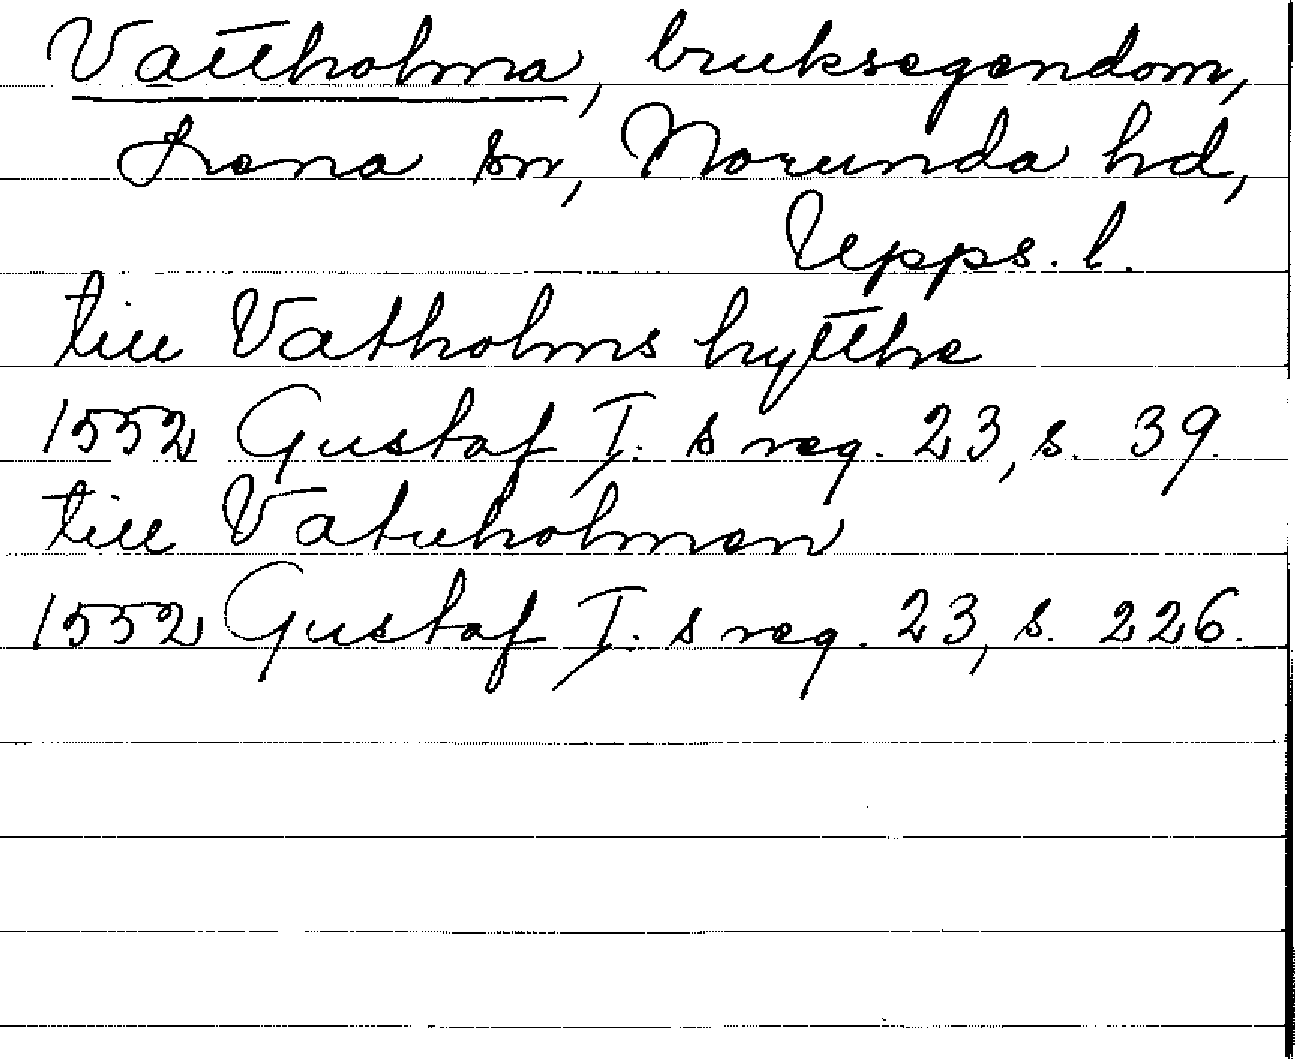 Vattholma, bruksegendom,
Lena sn, Norunda hd,
Upps. l.
till Vatholms hytthe
1552 Gustaf I:s reg. 23, s. 39.
till Vatuholmen
1552 Gustaf I:s reg. 23, s. 226.